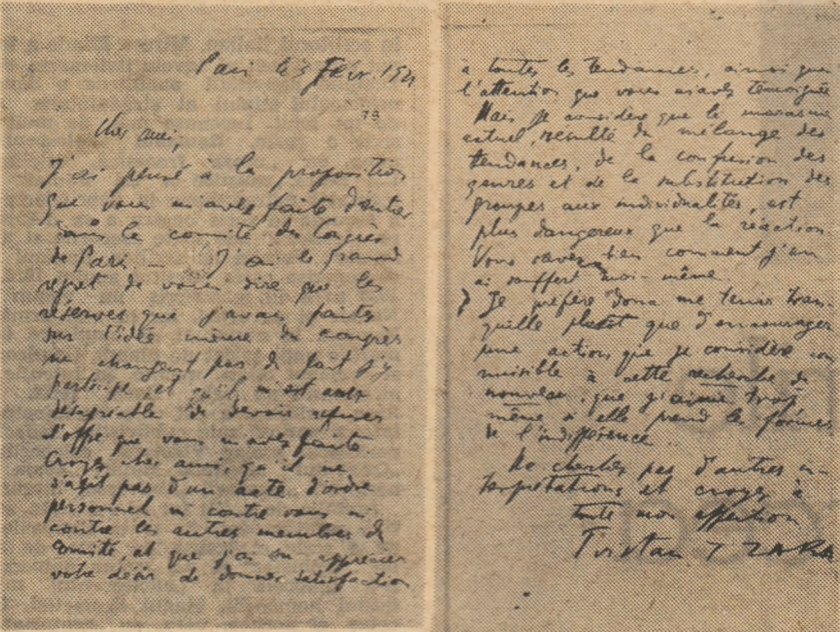 Paris le 3 Févr. 192
79
cher ami,
J'ai pensé à la proposition
que vous m'avez faite d'entrer
dans le comité du Congrès
de Paris — J'ai le grand
regret de vous dire que les
réserves que j'avais faites
sur l'idée même du congrès
ne changent pas du fait j'y
participe, et qu'il m'est assez
désagréable de devoir refuser
l'offre que vous m'avez faite.
Croyez cher ami, qu'il ne
s'agit pas d'un acte d'ordre
personnel ni contre vous ni
contre les autres membres du
comité, et que j'ai su apprécier
votre désir de donner satisfaction
à toutes les tendances, ainsi que
l'attention que vous m'avez témoignée
Mais je considère que le marasme
actuel, résulté du mélange des
tendances, de la confusion des
genres et de la substitution des
groupes aux individualités, est
plus dangereux que la réaction.
Vous savez bien comment j'en
ai souffert moi-même.
Je préfère donc me tenir tran
quille plutôt que d'encourager
une action que je considère comme
nuisible à cette recherche du
nouveau, que j'aime trop
même si elle prend les formes
de l'indifférence..
Ne cherchez pas d'autres in-
terprétations et croyez à
toute mon affection
Tristan TZARA